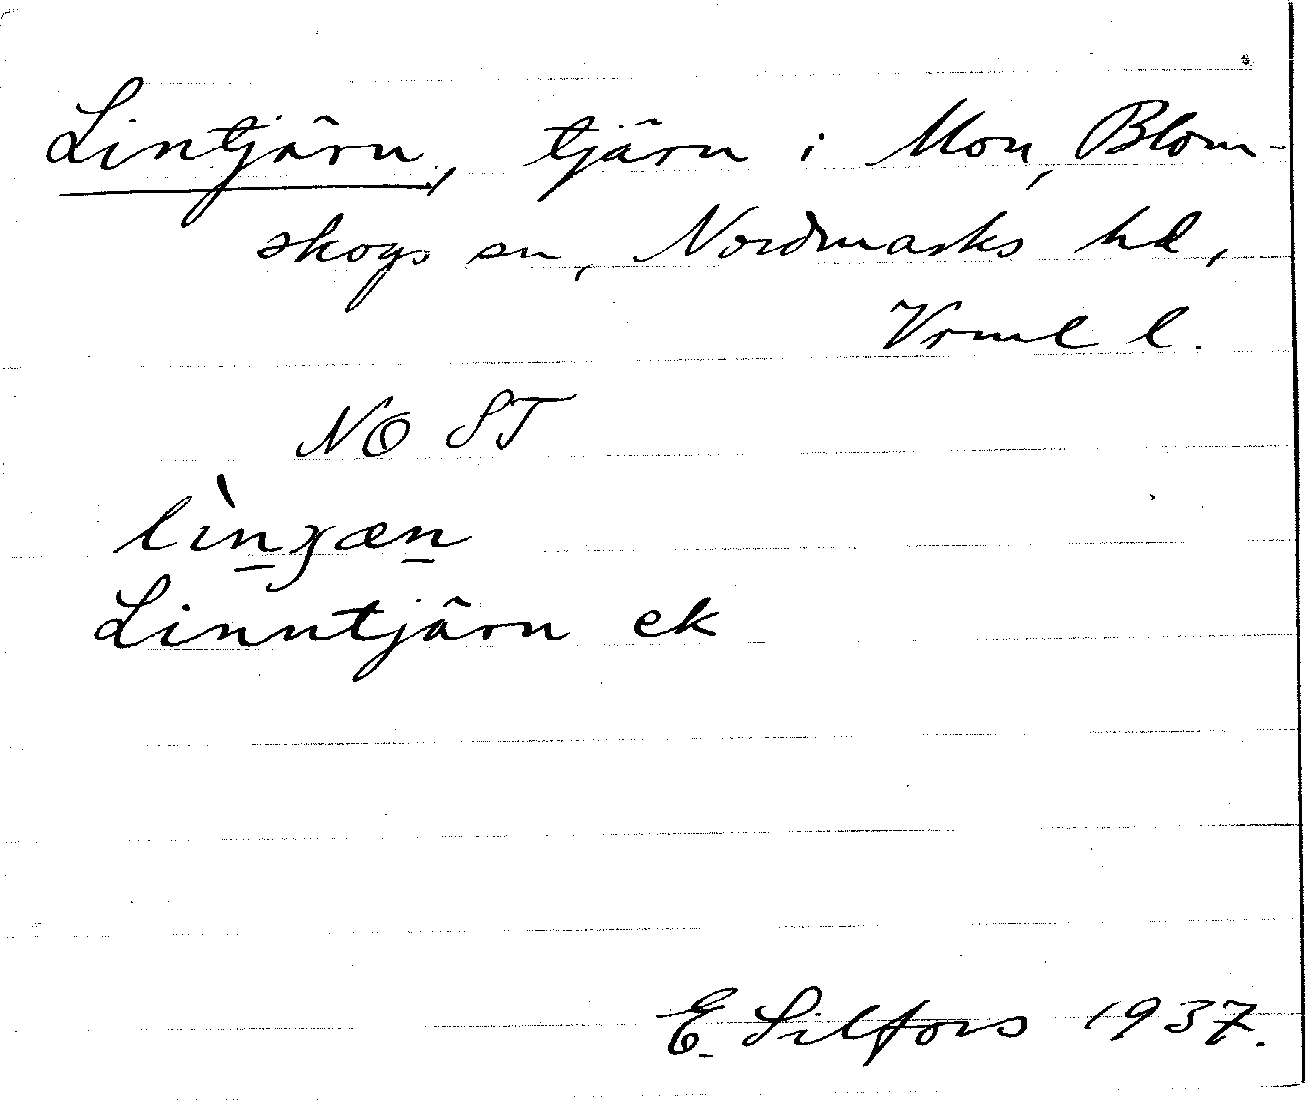 Lintjärn, tjärn i Mon, Blom-
skogs sn, Nordmarks hd,
Vrml l.
NO ST
lìn̲ʒæn̲
Linntjärn ek
E. Silfors 1937.